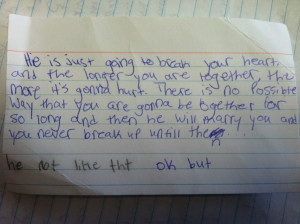 He is just going to break your heart
and the longer you are together, the
more it's gonna hurt. There is no possible
way that you are gonna be together for
so long and then he will marry you and
you never break up untill the...
he not like tht ok but